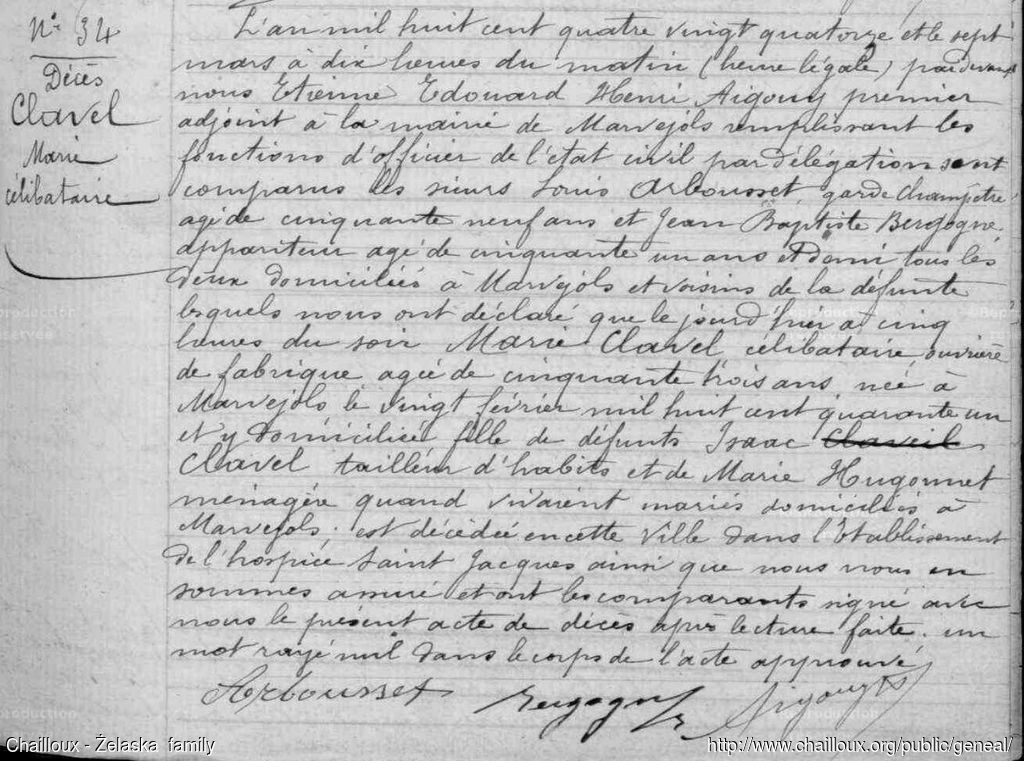 N° 34
Décès
Clavel
Marie
célibataire
L'an mil huit cent quatre vingt quatorze et le sept
mars à dix heures du matin (heure légale) pardevant
nous Etienne Edouard Henri Aigouy premier
adjoint à la mairie de Marvejols remplissant les
fonctions d'officier de l'état civil par délégation sont
comparus les sieurs Louis Arbousset, garde champêtre
agé de cinquante neuf ans et Jean Baptiste Bergogne
appariteur agé de cinquante un ans et demi tous les
deux domiciliés à Marvejols et voisins de la défunte
lesquels nous ont déclaré que le jourd'hier à cinq
heures du soir Marie Clavel célibataire ouvrière
de fabrique agée de cinquante trois ans née à
Marvejols le vingt février mil huit cent quarante un
et y domiciliée fille de défunts Isaac Claveil
Clavel tailleur d'habits et de Marie Hugonnet
ménagère quand vivaient mariés domiciliés à
Marvejols; est décédée en cette ville dans l'Etablissement
de l'hospice Saint Jacques ainsi que nous nous en
sommes assuré et ont les comparants signé avec
nous le présent acte de décès après lecture faite. un
mot rayé nul dans le corps de l'acte approuvé
Arbousset Bergogne Aigouy
Chailloux - Żelaska family
http://www.chailloux.org/public/geneal/